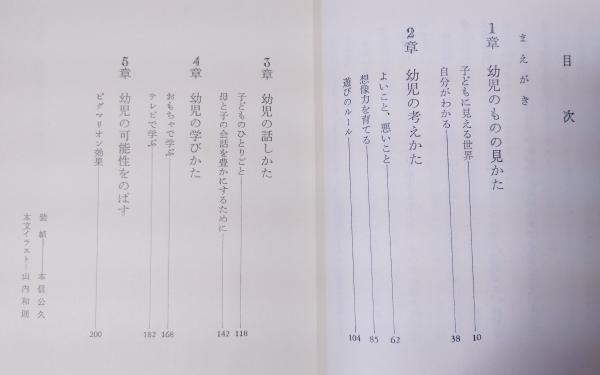 目次
まえがき
1章 幼児のものの見かた
子どもに見える世界 10
自分がわかる 38
2章 幼児の考えかた
よいこと、悪いこと 62
想像力を育てる 85
遊びのルール 104
3章 幼児の話しかた
子どものひとりごと 118
母と子の会話を豊かにするために 142
4章 幼児の学びかた
おもちゃで学ぶ 168
テレビで学ぶ 182
5章 幼児の可能性をのばす
ピグマリオン効果 200
装幀——本信公久
本文イラスト——山内和則